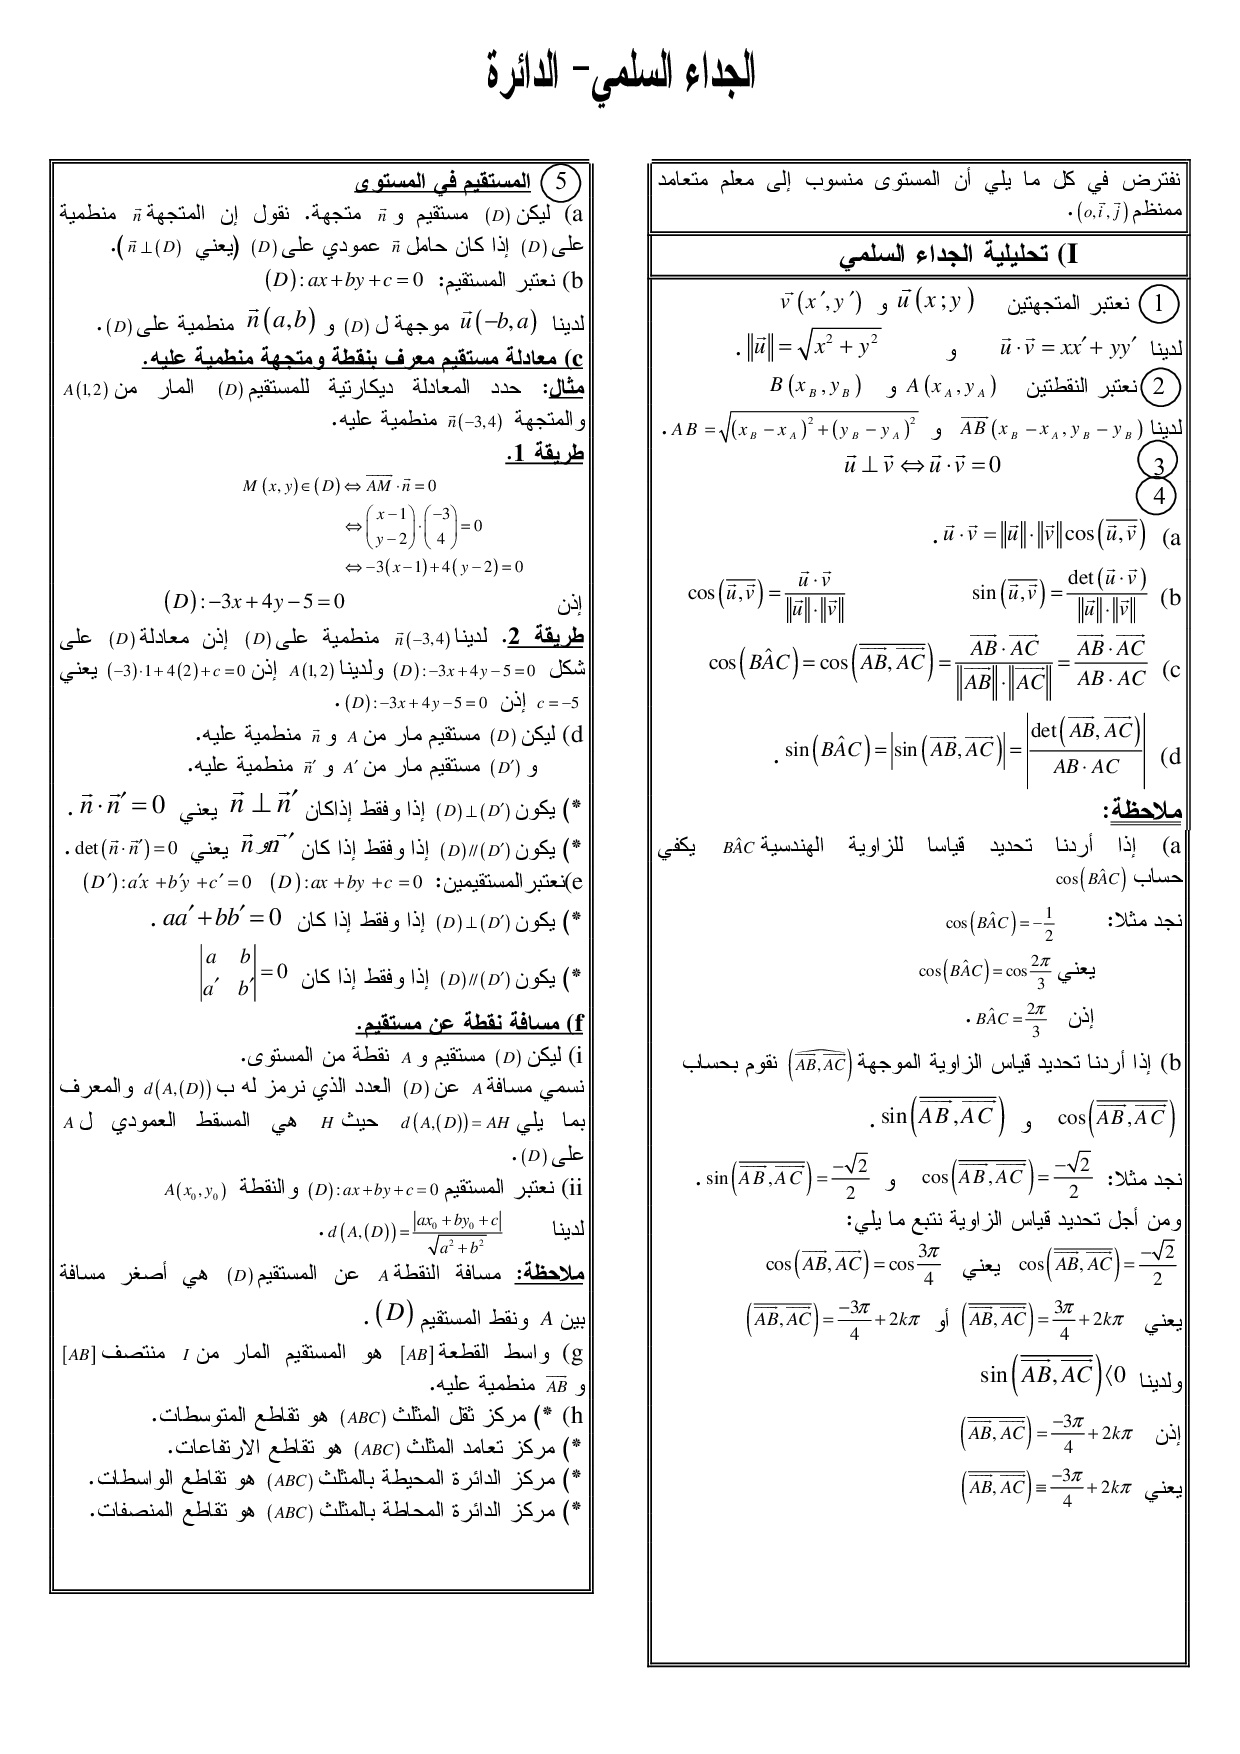 الجداء السلمي- الدائرة
نفترض في كل ما يلي أن المستوى منسوب إلى معلم متعامد
ممنظم (o,i⃗,j⃗).
I) تحليلية الجداء السلمي
1 نعتبر المتجهتين u⃗(x;y) و v⃗(x′,y′)
لدينا u⃗·v⃗=xx′+yy′ و ‖u⃗‖=√(x²+y²).
2 نعتبر النقطتين A(x_A,y_A) و B(x_B,y_B)
لدينا AB⃗(x_B−x_A,y_B−y_B) و AB=√((x_B−x_A)²+(y_B−y_A)²).
3 u⃗⊥v⃗⇔u⃗·v⃗=0
4
a) u⃗·v⃗=‖u⃗‖·‖v⃗‖cos(u⃗,v⃗).
b) sin(u⃗,v⃗)=det(u⃗·v⃗)/(‖u⃗‖·‖v⃗‖) cos(u⃗,v⃗)=(u⃗·v⃗)/(‖u⃗‖·‖v⃗‖)
c) cos(BÂC)=cos(AB⃗,AC⃗)=(AB⃗·AC⃗)/(‖AB⃗‖·‖AC⃗‖)=(AB⃗·AC⃗)/(AB·AC)
d) sin(BÂC)=|sin(AB⃗,AC⃗)|=|det(AB⃗,AC⃗)/(AB·AC)|.
ملاحظة:
a) إذا أردنا تحديد قياسا للزاوية الهندسية BÂC يكفي
حساب cos(BÂC)
نجد مثلا: cos(BÂC)=−1/2
يعني cos(BÂC)=cos 2π/3
إذن BÂC=2π/3.
b) إذا أردنا تحديد قياس الزاوية الموجهة (AB⃗,AC⃗) نقوم بحساب
cos(AB⃗,AC⃗) و sin(AB⃗,AC⃗).
نجد مثلا: cos(AB⃗,AC⃗)=−√2/2 و sin(AB⃗,AC⃗)=−√2/2.
ومن أجل تحديد قياس الزاوية نتبع ما يلي:
cos(AB⃗,AC⃗)=−√2/2 يعني cos(AB⃗,AC⃗)=cos 3π/4
يعني (AB⃗,AC⃗)=3π/4+2kπ أو (AB⃗,AC⃗)=−3π/4+2kπ
ولدينا sin(AB⃗,AC⃗)⟨0
إذن (AB⃗,AC⃗)=−3π/4+2kπ
يعني (AB⃗,AC⃗)≡−3π/4+2kπ
5 المستقيم في المستوى
a) ليكن (D) مستقيم و n⃗ متجهة. نقول إن المتجهة n⃗ منظمية
على (D) إذا كان حامل n⃗ عمودي على (D) (يعني n⃗⊥(D)).
b) نعتبر المستقيم: (D):ax+by+c=0
لدينا u⃗(−b,a) موجهة ل (D) و n⃗(a,b) منظمية على (D).
c) معادلة مستقيم معرف بنقطة ومتجهة منظمية عليه.
مثال: حدد المعادلة ديكارتية للمستقيم (D) المار من A(1,2)
والمتجهة n⃗(−3,4) منظمية عليه.
طريقة 1.
M(x,y)∈(D)⇔AM⃗·n⃗=0
⇔(x−1 y−2)·(−3 4)=0
⇔−3(x−1)+4(y−2)=0
إذن (D):−3x+4y−5=0
طريقة 2. لدينا n⃗(−3,4) منظمية على (D) إذن معادلة (D) على
شكل (D):−3x+4y−5=0 ولدينا A(1,2) إذن (−3)·1+4(2)+c=0 يعني
c=−5 إذن (D):−3x+4y−5=0.
d) ليكن (D) مستقيم مار من A و n⃗ منظمية عليه.
و (D′) مستقيم مار من A′ و n⃗′ منظمية عليه.
*) يكون (D)⊥(D′) إذا وفقط إذاكان n⃗⊥n⃗′ يعني n⃗·n⃗′=0.
*) يكون (D)//(D′) إذا وفقط إذا كان n⃗ و n⃗′ يعني det(n⃗·n⃗′)=0.
e)نعتبرالمستقيمين: (D):ax+by+c=0 (D′):a′x+b′y+c′=0
*) يكون (D)⊥(D′) إذا وفقط إذا كان aa′+bb′=0.
*) يكون (D)//(D′) إذا وفقط إذا كان |a b a′ b′|=0
f) مسافة نقطة عن مستقيم.
i) ليكن (D) مستقيم و A نقطة من المستوى.
نسمي مسافة A عن (D) العدد الذي نرمز له ب d(A,(D)) والمعرف
بما يلي d(A,(D))=AH حيث H هي المسقط العمودي ل A
على (D).
ii) نعتبر المستقيم (D):ax+by+c=0 والنقطة A(x₀,y₀)
لدينا d(A,(D))=|ax₀+by₀+c|/√(a²+b²).
ملاحظة: مسافة النقطة A عن المستقيم (D) هي أصغر مسافة
بين A ونقط المستقيم (D).
g) واسط القطعة [AB] هو المستقيم المار من I منتصف [AB]
و AB⃗ منظمية عليه.
h) *) مركز ثقل المثلث (ABC) هو تقاطع المتوسطات.
*) مركز تعامد المثلث (ABC) هو تقاطع الارتفاعات.
*) مركز الدائرة المحيطة بالمثلث (ABC) هو تقاطع الواسطات.
*) مركز الدائرة المحاطة بالمثلث (ABC) هو تقاطع المنصفات.